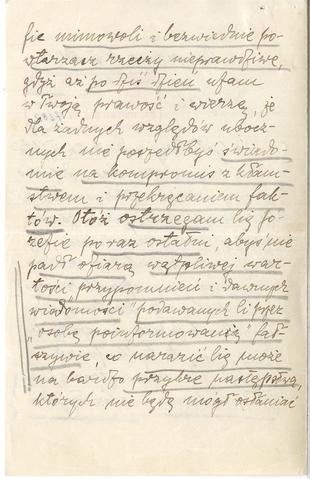 fię mimowoli i bezwiednie po-
wtarzasz rzeczy nieprawdziwe,
gdyż aż po dziś dzień ufam
w Twoją prawość i wierzę, że
dla żadnych względów ubocz-
nych nie poszedłbyś świado-
mie na kompromis z kłam-
stwem i przekręcaniem fak-
tów. Otóż ostrzegam Cię Jó-
zefie po raz ostatni, abyś nie
padł ofiarą wątpliwej war-
tości "przypomnień i dawnych
wiadomości" podawanych Ci przez
"osobę poinformowaną" fał-
szywie, co narazić Cię może
na bardzo przykre następstwa,
których nie będę mógł osłaniać